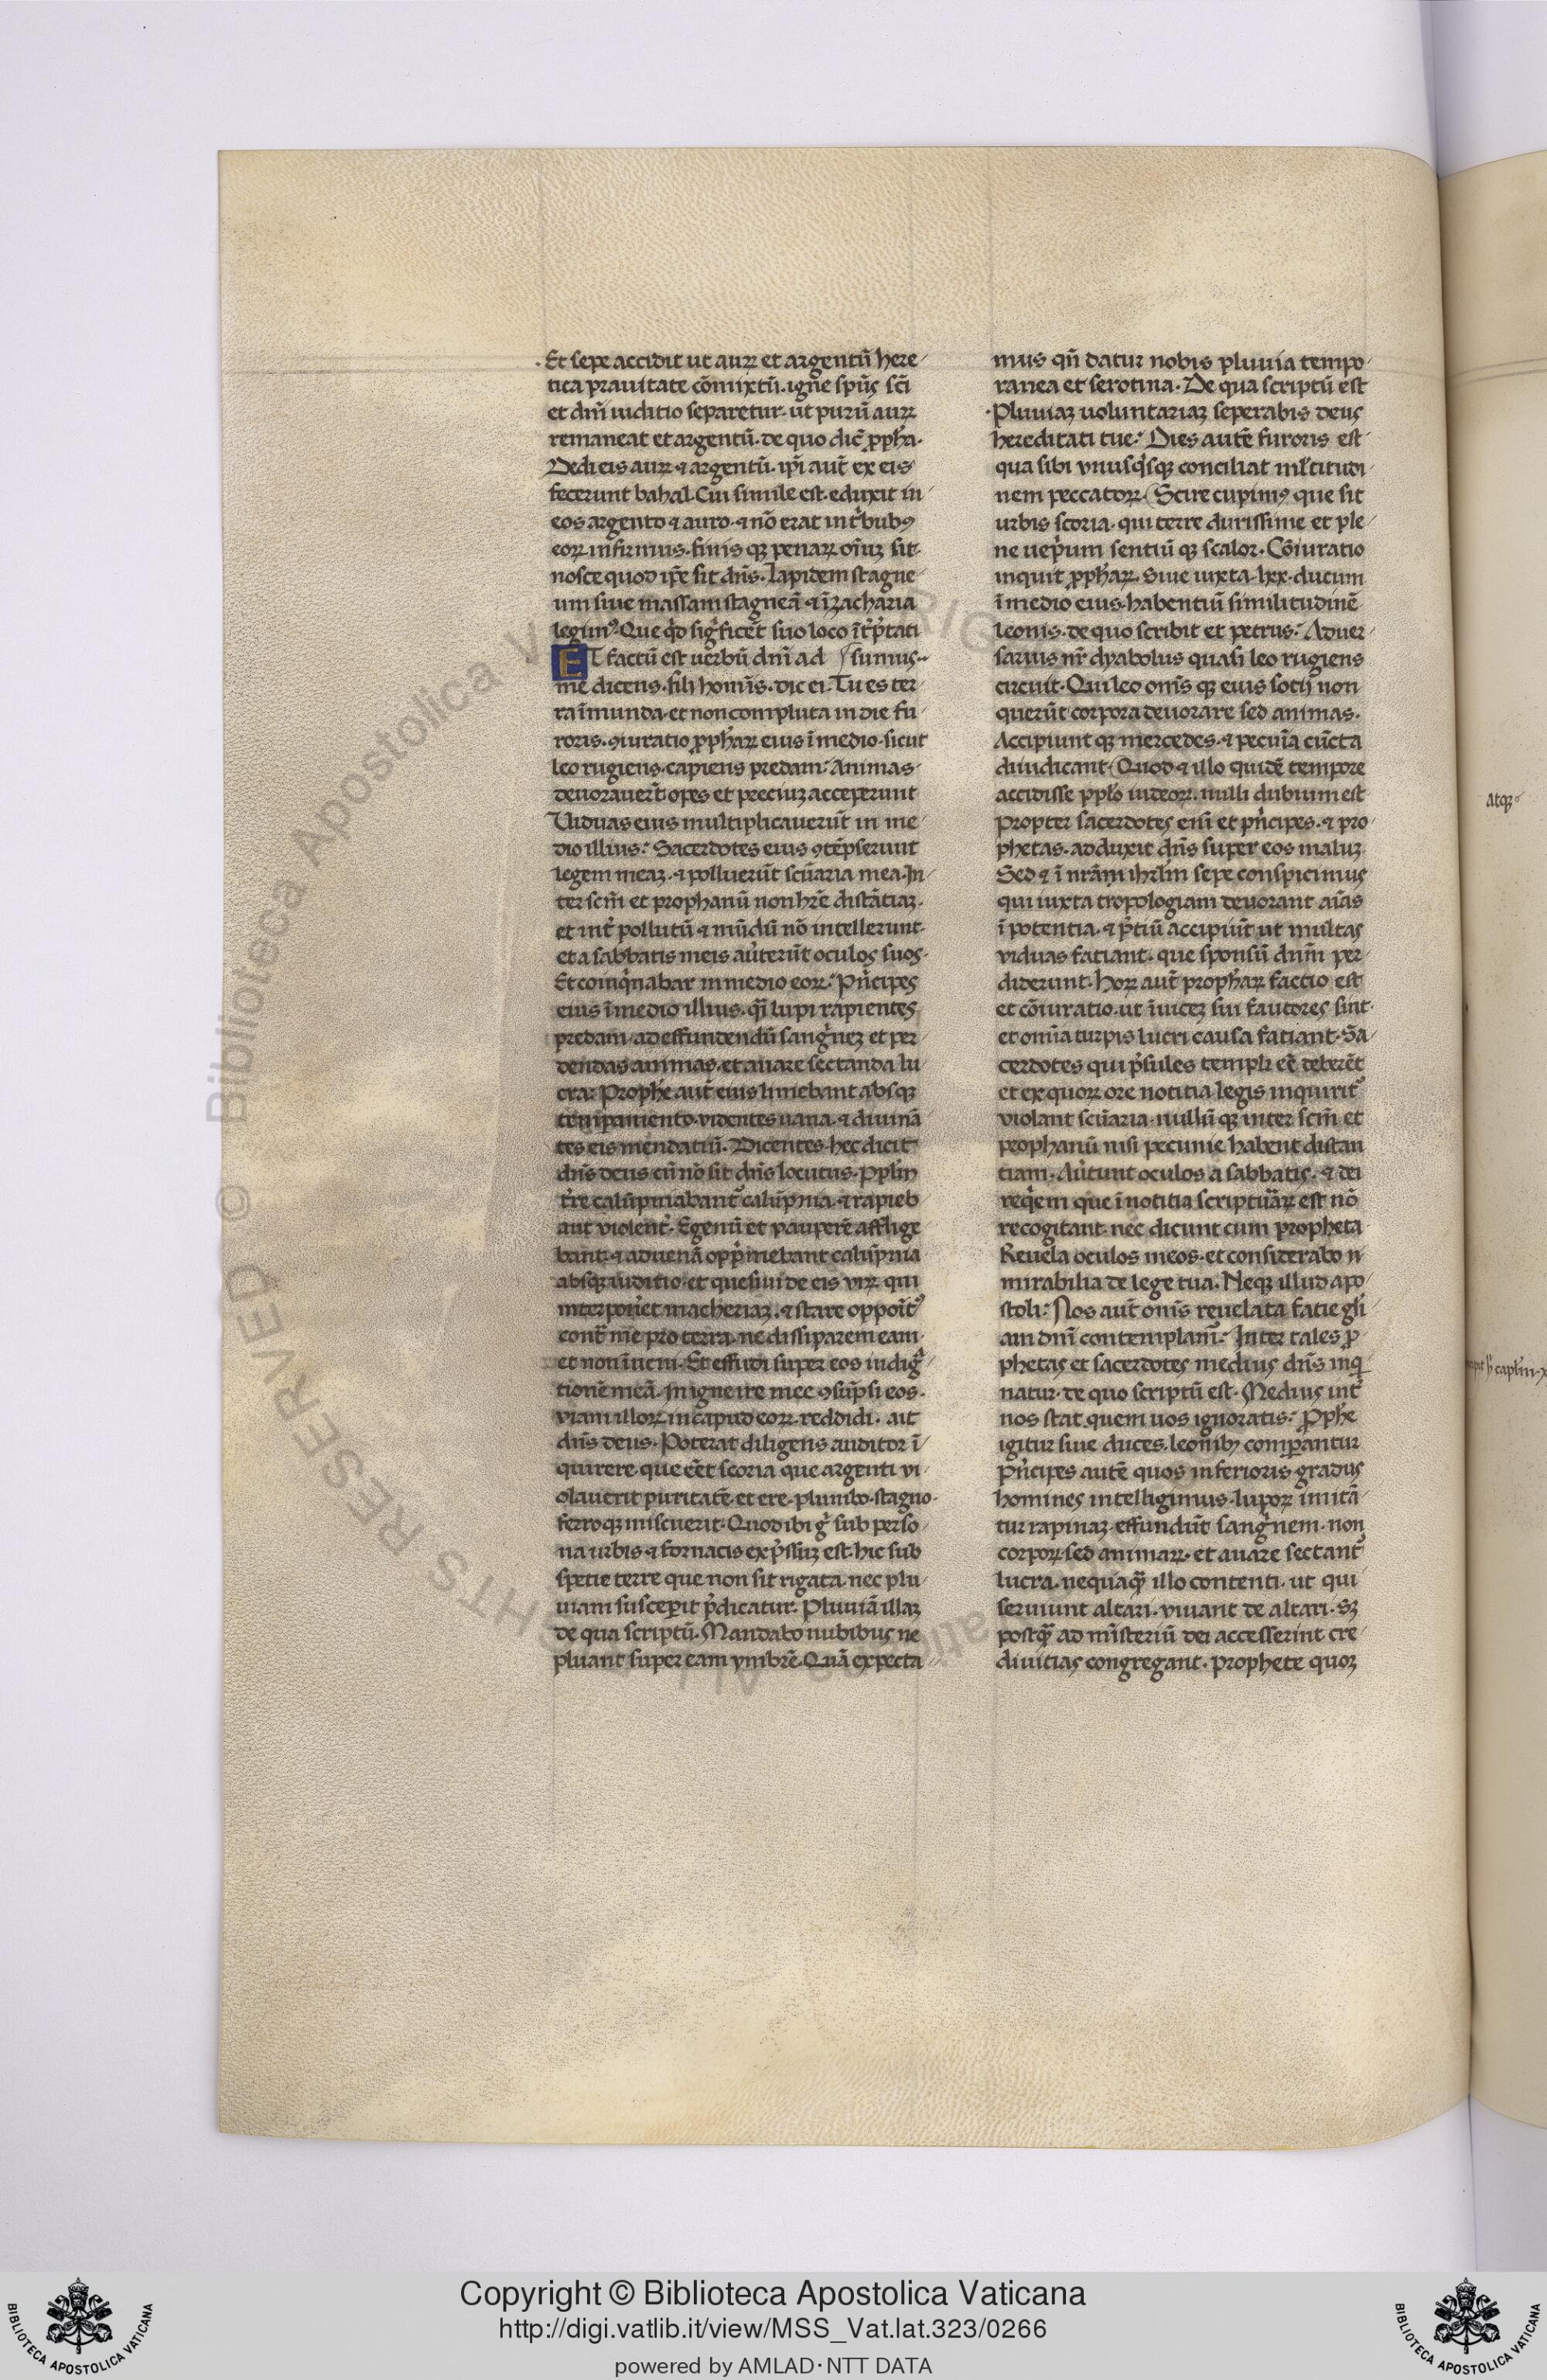 Et sepe accidit ut auꝝ et argentū here
tica prauitate cōmixtū. igne spūs sc̄i
et dn̄i iuditio separetur. ut purū auꝝ
remaneat et argentū. de quo dic̄ ꝓph̄a.
Dedi eis auꝝ ⁊ argentū. ip̄i aut̄ ex eis
fecerunt bahal. Cui simile est. eduxit in
eos argento ⁊ auro. ⁊ nō erat in tͥbubꝰ
eoꝝ infirmus. finis qꝫ penaꝝ om̄iuꝫ sit
nosce quod ip̄e sit dn̄s. Lapidem stagne
um siue massam stagneā ⁊ ī zacharia
legimꝰ. Que qͥd sigͥficet̄ suo loco īt̄p̄tati
ET factū est uerbū dn̄i ad sumus.
me dicens. fili homīs. dic ei. Tu es ter
ra īmunda. et non compluta in die fu
roris. ꝯiuratio ꝓphaꝝ eius ī medio. sicut
leo rugiens. capiens predam. Animas
deuorauer̄t. opes et preciuꝫ acceperunt
Viduas eius multiplicauerūt in me
dio illius. Sacerdotes eius ꝯtēpserunt
legem meaꝫ. ⁊ polluerūt scūaria mea. In
ter scm̄ et prophanū non hr̄e distātiaꝫ.
et int̄ pollutū ⁊ mūdū nō intellexunt.
et a sabbatis meis auͥterūt oculos suos.
Et coinqͥnabar in medio eoꝝ. Pͥncipes
eius ī medio illius. qͣi lupi rapientes
predam. ad effundendū sangͥneꝫ et per
dendas animas. et auare sectanda lu
cra. Prophe aut̄ eius liniebant absqꝫ
temꝑamento. videntes uana. ⁊ diuinā
tes eis mendatiū. Dicentes. hec dicit
dn̄s deus cū nō sit dn̄s locutus. Ppl̄m
t̄re calūpniabant᷒ calūpnia. ⁊ rapieb
ant violent̄. Egenū et pauperē afflige
bant. ⁊ aduenā oppͥmebant calūpnia
absqꝫ iuditio. et quesiui de eis viꝝ qui
interponet̄ macheriaꝫ. ⁊ stare oppoīt᷒
cont̄ me pro terra. ne dissiparem eam.
et non īueni. Et effudi super eos indigͣ
tionē meā. In igne ire mee ꝯsūpsi eos.
viam illoꝝ in capud eoꝝ. reddidi. ait
dn̄s deus. Poterat diligens auditor ī
quirere. que eēt scoria que argenti vi
olauerit puritatē. et ere. plumbo. stagno.
ferroqꝫ miscuerit. Quod ibi gͦ sub perso
na urbis ⁊ fornacis exp̄ssuꝫ est. hic sub
spetie terre que non sit rigata nec plu
uiam susceperit p̄dicatur. Pluuiā illaꝫ
de qua scriptū. Mandabo nubibus ne
pluant super eam ymbrē. Quā expecta
mus qn̄ datur nobis pluuia tempo
ranea et serotina. De qua scriptū est
Pluuiaꝫ uoluntariaꝫ seperabis deus
hereditati tue. Dies autē furoris est
qua sibi vnusqͥsqꝫ conciliat ml̄titudi
nem peccatoꝝ. Scire cupimꝰ que sit
urbis scoria. qui terre durissime et ple
ne uepͥum sentiū qꝫ scalor. Cōiuratio
inquit ꝓphaꝝ. Siue iuxta. lxx. ducum
ī medio eius. habentiū similitudinē
leonis. de quo scribit et petrus. Aduer
sarius nr̄ dyabolus quasi leo rugiens
circuit. Qui leo omīs qꝫ eius sotij non
querūt corpora deuorare sed animas.
Accipiunt qꝫ mercedes. ⁊ pecunīa cūcta
diiudicant. Quod ⁊ illo quidē tempore
accidisse ppl̄o iudeoꝝ. nulli dubium est
Propter sacerdotes eīsi et pͥncipes. ⁊ pro
phetas. adduxit dn̄s super eos maluꝫ.
Sed ⁊ ī nrām ihrl̄m sepe conspicimus
qui iuxta tropologiam deuorant aīas
ī potentia. ⁊ p̄tiū accipiūt ut multas
viduas fatiant. que sponsū dnm̄ per
diderunt. Hoꝝ aut̄ prophaꝝ factio est
et cōiuratio. ut īuiceꝫ sui fautores sint.
et omīa turpis lucri causa fatiant. Sa
cerdotes qui p̄sules templi eē deberēt
et ex quoꝝ ore notitia legis inquirit᷒
violant scūaria. nullū qꝫ inter scm̄ et
prophanū nisi pecunie habent distan
tiam. Auͥtunt oculos a sabbatis. ⁊ dei
reqͥem que ī notitia scripturāꝝ est nō
recogitant. nec dicunt cum propheta
Reuela oculos meos. et considerabo
mirabilia de lege tua. Neqꝫ illud apo
stoli. Nos aut̄ omīs reuelata fatie gl̄i
am dn̄i contemplam᷒. Inter tales ꝓ
phetas et sacerdotes medius dn̄s inqͥ
natur. de quo scriptū est. Medius int̄
nos stat quem uos ignoratis. Pphe
igitur siue duces. leonibꝫ comꝑantur
Pͥncipes autē quos inferioris gradus
homines intelligimus. lupoꝝ imitā
tur rapinaꝫ. effundūt sangͥnem. non
corpoꝝ. sed animaꝝ. et auare sectant᷒
lucra. nequaqͣ illo contenti. ut qui
seruiunt altari. viuant de altari. Sꝫ
postqͣ ad mīsteriū dei accesserint cre
diuitias congregant. Prophete quoꝫ
atqꝫ
Copyright © Biblioteca Apostolica Vaticana
http://digi.vatlib.it/view/MSS_Vat.lat.323/0266
powered by AMLAD·NTT DATA
BIBLIOTECA APOSTOLICA VATICANA
BIBLIOTECA APOSTOLICA VATICANA